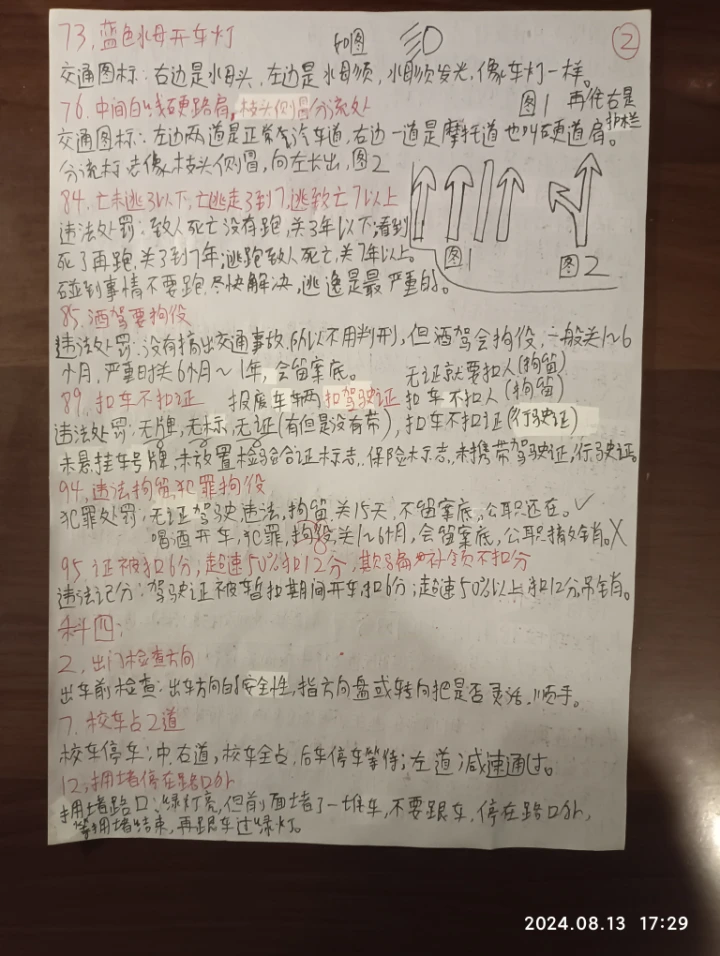 73. 蓝色水母开车灯 如图 ②
交通图标: 右边是水母头, 左边是水母须, 水母须发光, 像车灯一样。
76. 中间白线硬路肩, 枝头侧冒分流处 图1 再往右是护栏
交通图标: 左边两道是正常汽车道, 右边一道是摩托道也叫硬道肩。
分流标志像枝头侧冒, 向左长出, 图2
84. 亡未逃3以下, 亡逃走3到7, 逃致亡7以上
违法处罚: 致人死亡没有跑, 关3年以下; 看到
死了再跑, 关3到7年; 逃跑致人死亡, 关7年以上。
图1 图2
碰到事情不要跑, 尽快解决, 逃逸是最严重的。
85. 酒驾要拘役
违法处罚: 没有搞出交通事故, 所以不用判刑, 但酒驾会拘役, 一般关1~6
个月, 严重时关6个月~1年, 会留案底。 无证就要扣人(拘留)
89. 扣车不扣证 报废车车两扣驾驶证 扣车不扣人(拘留)
违法处罚: 无牌, 无标, 无证(有但是没有带), 扣车不扣证(行驶证)
未悬挂车号牌, 未放置检验合证标志, 保险标志, 未携带驾驶证, 行驶证。
94. 违法拘留, 犯罪拘役
犯罪处罚: 无证驾驶违法, 拘留, 关15天, 不留案底, 公职还在。✓
喝酒开车, 犯罪, 拘役, 关1~6个月, 会留案底, 公职撤销。X
95. 证被扣6分; 超速50%扣12分; 补领不扣分
违法记分: 驾驶证被暂扣期间开车, 扣6分; 超速50%以上扣12分, 吊销。
科四:
2. 出门检查方向
出车前检查: 出车方向的安全性, 指方向盘或转向把是否灵活、顺手。
7. 校车占2道
校车停车: 中, 右道, 校车全占, 后车停车等待; 左道减速通过。
12. 拥堵停在路口外
拥堵路口: 绿灯亮, 但前面堵了一堆车, 不要跟车, 停在路口外,
等拥堵结束, 再跟车过绿灯。
2024.08.13 17:29